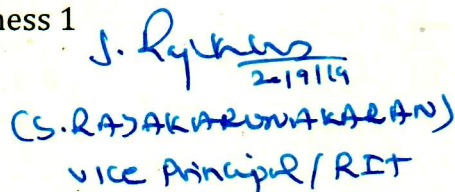 ness 1
20/9/19
(S. RAJAKARUNAKARAN)
vice Principal / RIT